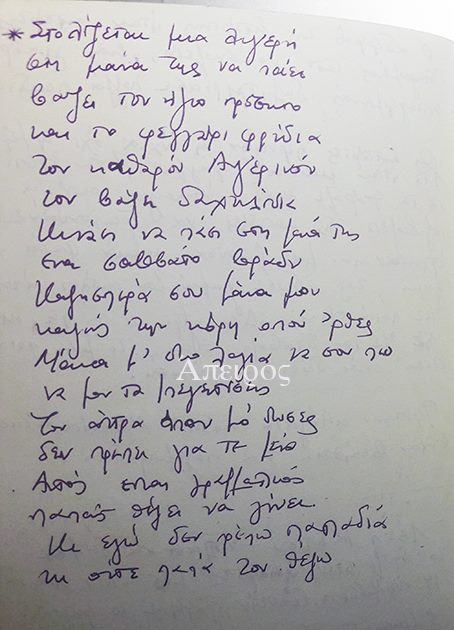 * Στολίζεται μια λιγερή
στη μάνα της να πάει
βάζει τον ήλιο πρόσωπο
και το φεγγάρι φρύδια
τον καθαρόν Αυγερινόν
τον βάζει δαχτυλίδια
Κινάει να πάει στη μάνα της
ένα σαββάτο βράδυ
Καλησπέρα σου μάνα μου
καλώς την κόρη οπού 'ρθες
Μάνα μ' δυο λόγια να σου πω
να μου τα
Τον άντρα όπου μό 'δωσες
δεν πρέπει για τε μένα
Αυτός είναι γραμματικός
παπάς θέλει να γίνει
Κι εγώ δεν θέλω παπαδιά
κι ούτε παπά τον θέλω
Απειρος